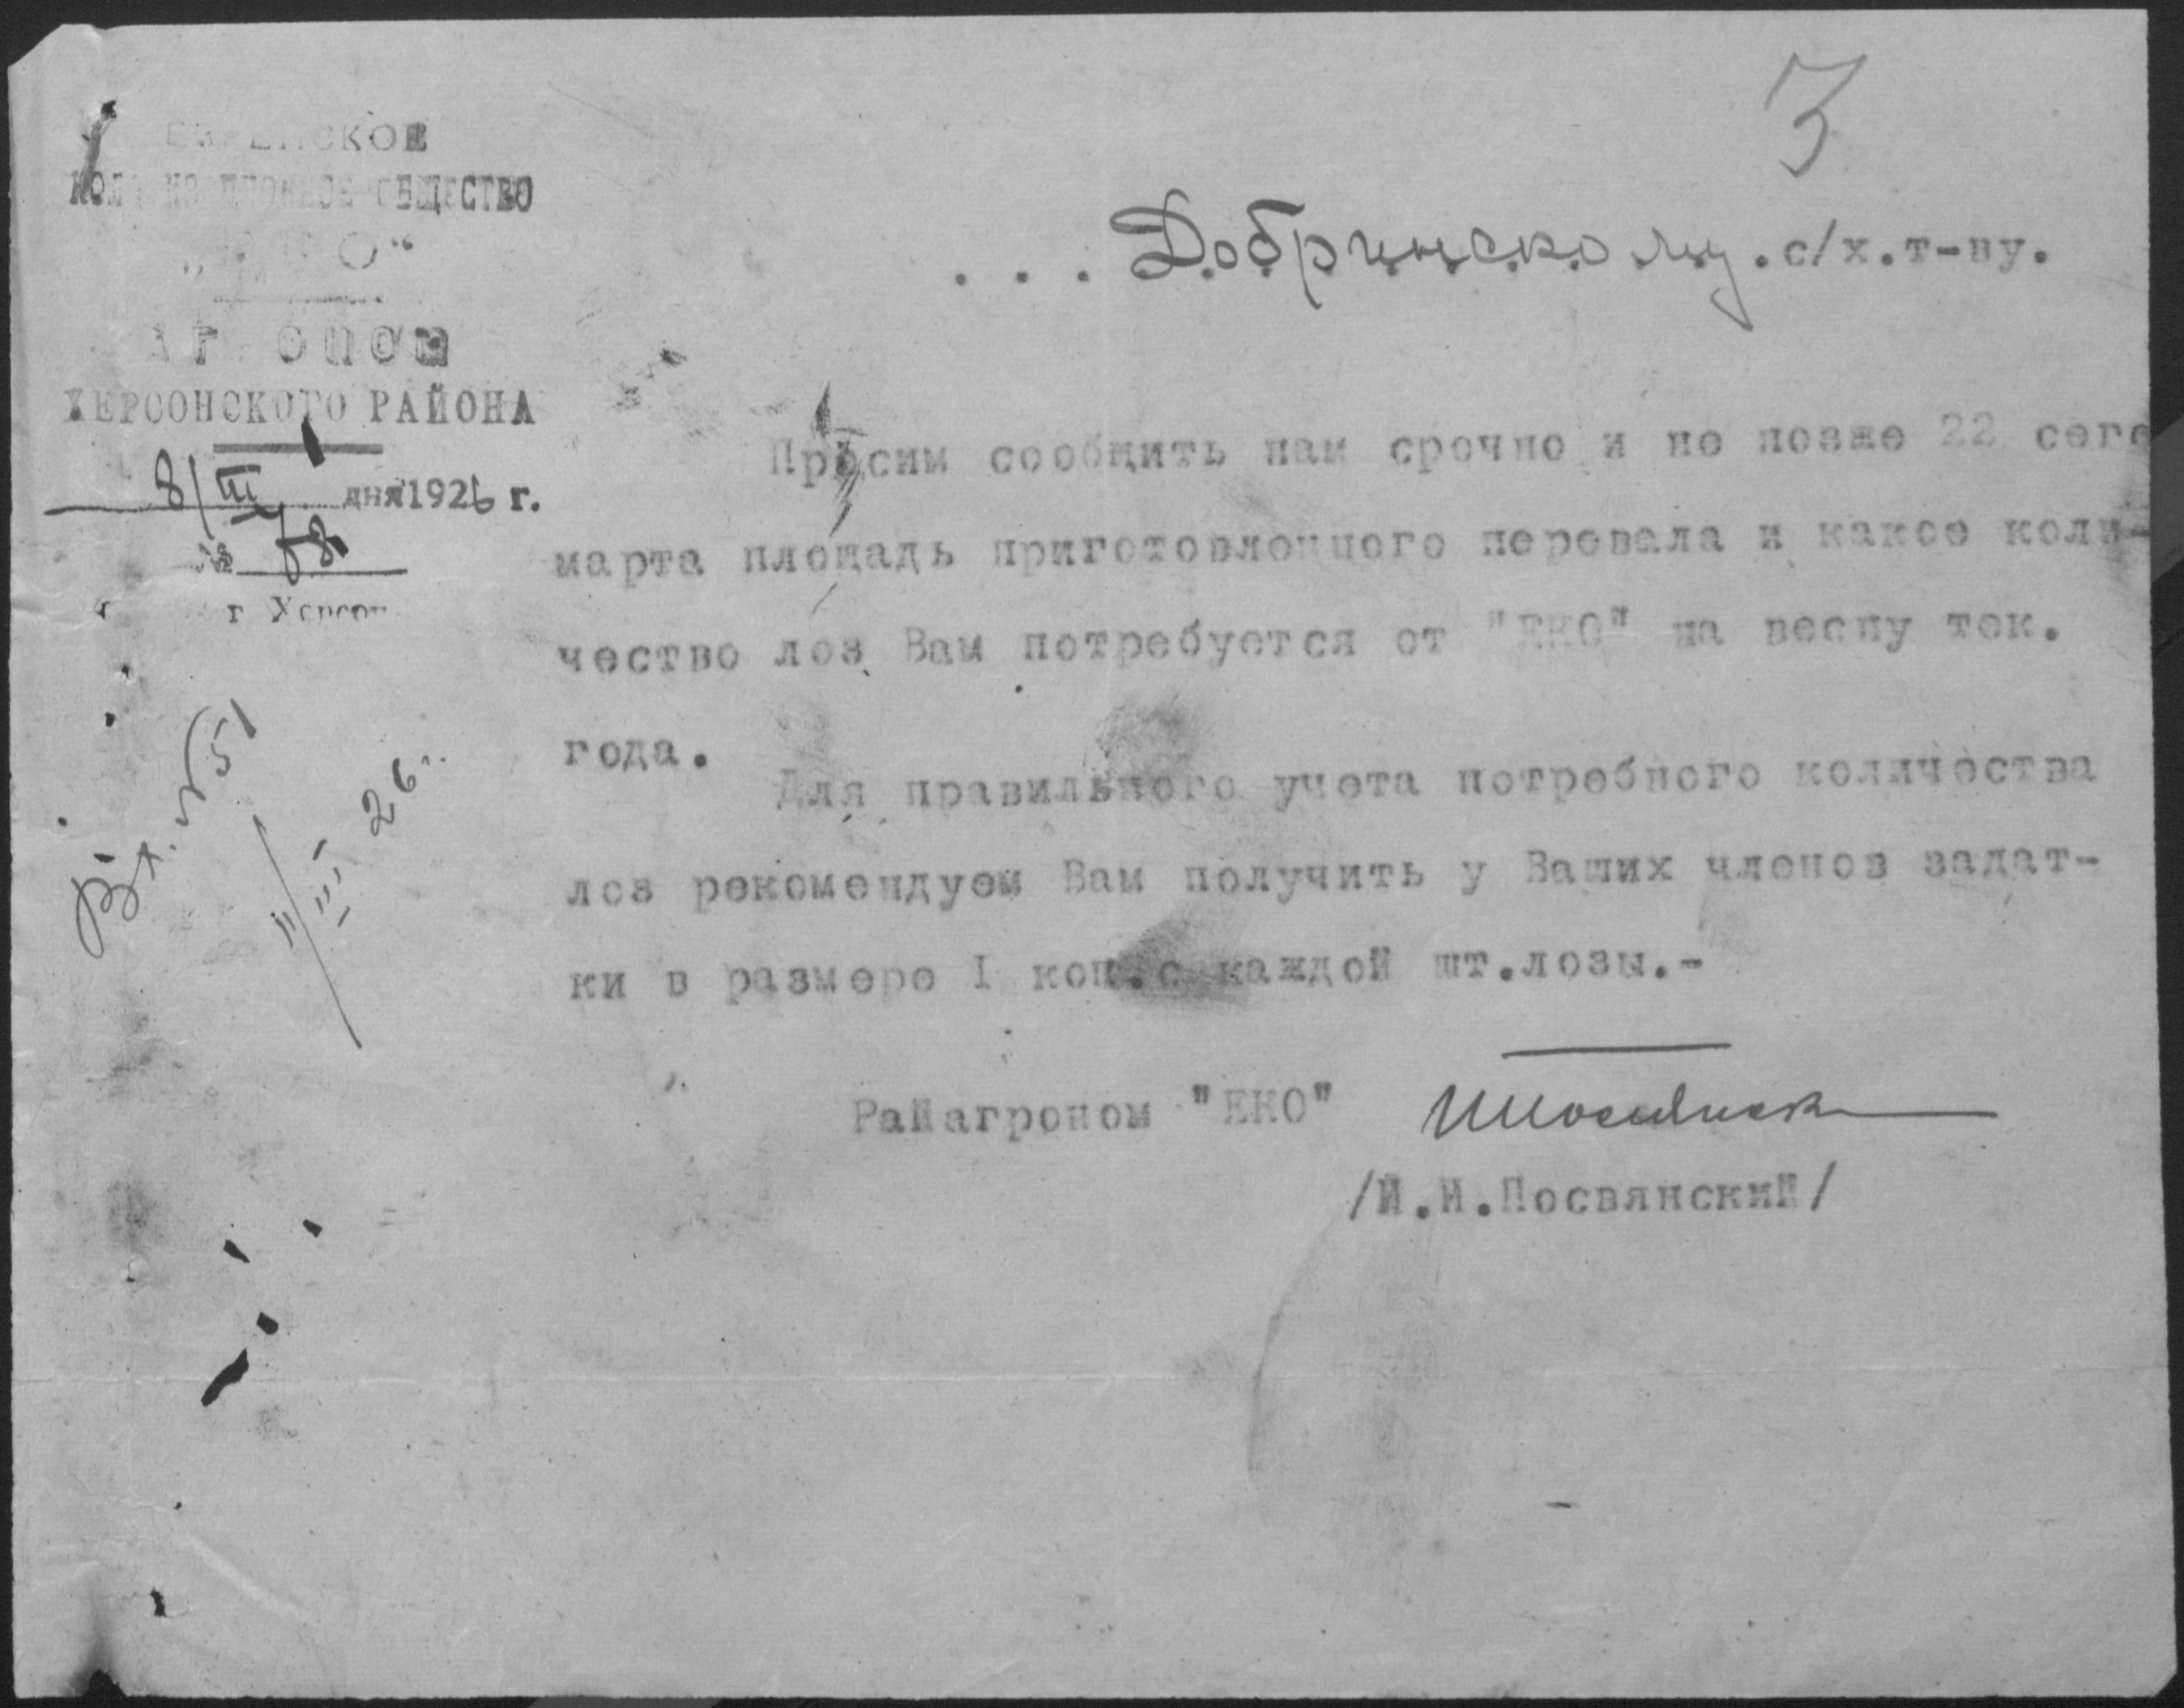 3
ЕВРЕЙСКОЕ
КОЛОНИЗАЦИОННОЕ ОБЩЕСТВО
„ЕКО“
АГРОНОМ
ХЕРСОНСКОГО РАЙОНА
8/III дня 1926 г.
№ 78
г Херсон
Вх. № 51
11/III 26.
...Добринскому.с/х.т-ву.
Просим сообщить нам срочно и не позже 22 сего
марта площадь приготовленного перевала и какое коли-
чество лоз Вам потребуется от "ЕКО" на весну тек.
года.
Для правильного учета потребного количества
лоз рекомендуем Вам получить у Ваших членов задат-
ки в размере I коп.с каждой шт.лозы.-
Райагроном "ЕКО"
/И.И.Посвянский/